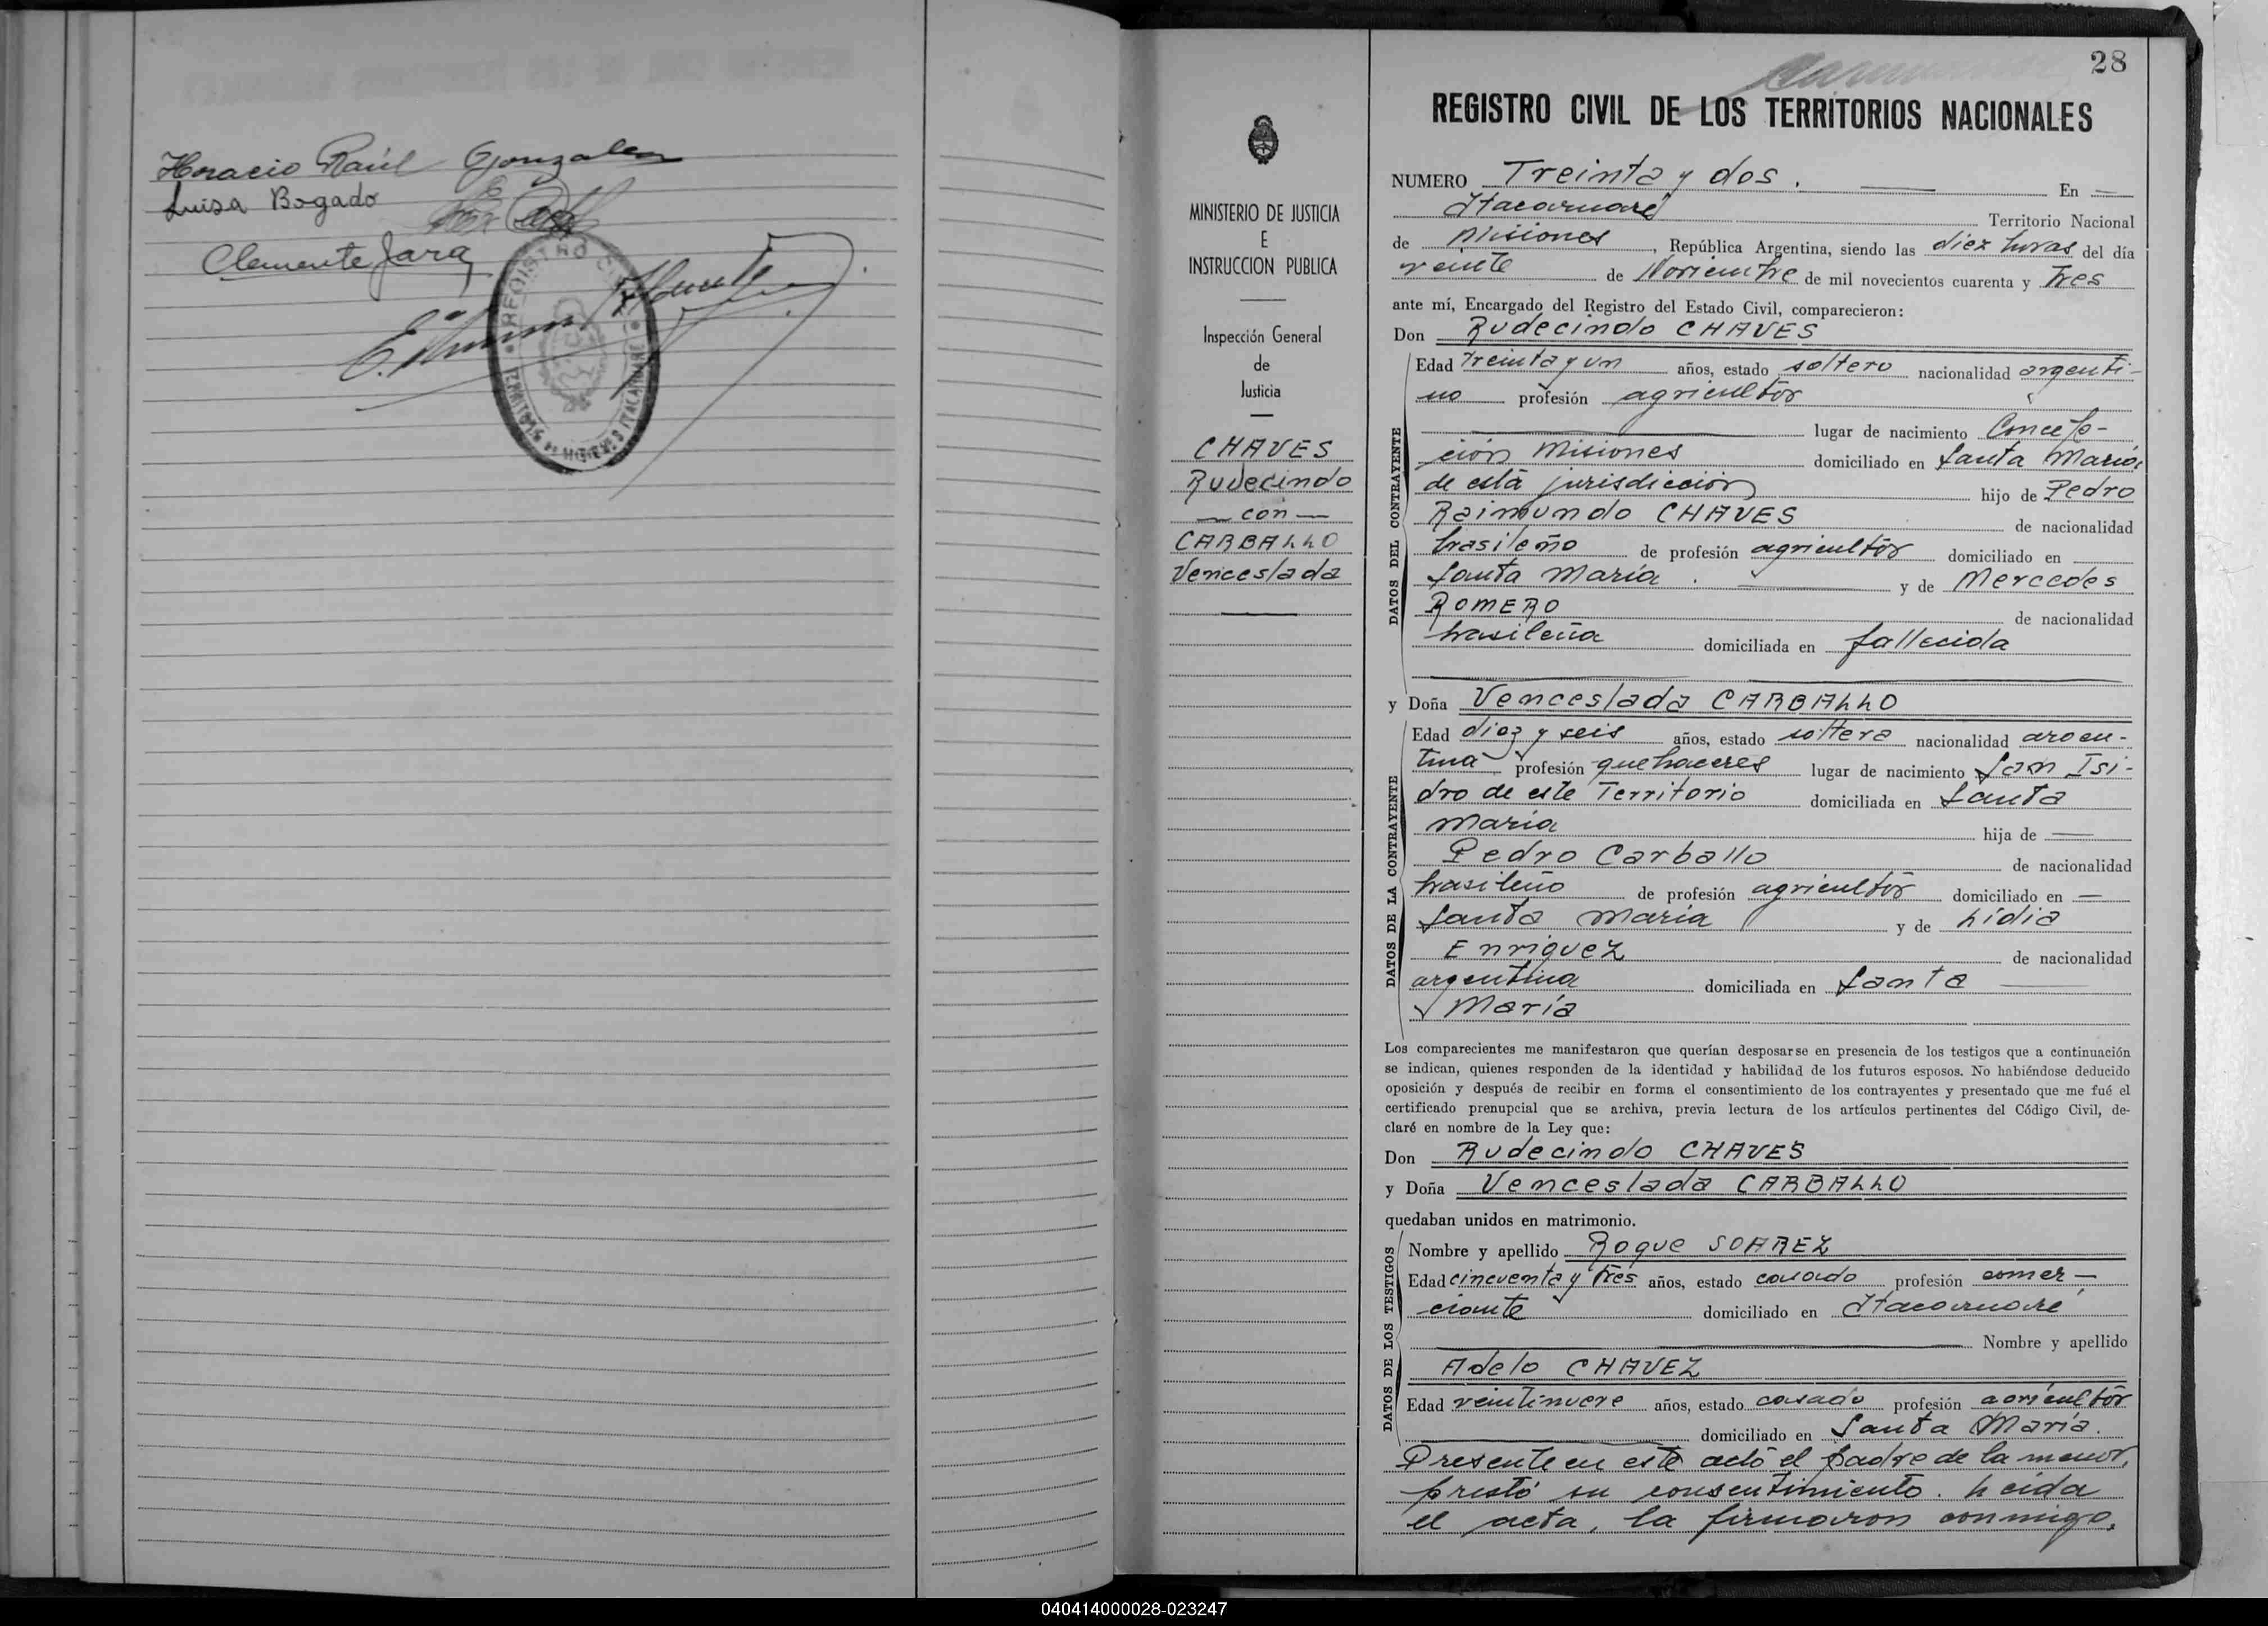 Horacio Raúl Gonzalez
Luisa Bogado
Clemente Jara
REGISTRO CIVIL
28
REGISTRO CIVIL DE LOS TERRITORIOS NACIONALES
MINISTERIO DE JUSTICIA
E
INSTRUCCION PUBLICA
Inspección General
de
Justicia
CHAVES
Rudecindo
— con —
CARBALLO
Venceslada
NUMERO Treinta y dos. — En —
Itacaruaré Territorio Nacional
de Misiones, República Argentina, siendo las diez horas del día
veinte de Noviembre de mil novecientos cuarenta y tres
ante mí, Encargado del Registro del Estado Civil, comparecieron:
Don Rudecindo CHAVES
DATOS DEL CONTRAYENTE
Edad treinta y un años, estado soltero nacionalidad argenti-
no profesión agricultor
lugar de nacimiento Concep-
ción Misiones domiciliado en Santa María,
de esta jurisdicción hijo de Pedro
Raimundo CHAVES de nacionalidad
brasileño de profesión agricultor domiciliado en
Santa María. y de Mercedes
ROMERO de nacionalidad
brasileña domiciliada en fallecida
y Doña Venceslada CARBALLO
DATOS DE LA CONTRAYENTE
Edad diez y seis años, estado soltera nacionalidad argen-
tina profesión quehaceres lugar de nacimiento San Isi-
dro de este Territorio domiciliada en Santa
María hija de —
Pedro Carballo de nacionalidad
brasileño de profesión agricultor domiciliado en —
Santa María y de Lidia
Enriquez de nacionalidad
argentina domiciliada en Santa
María
Los comparecientes me manifestaron que querían desposarse en presencia de los testigos que a continuación
se indican, quienes responden de la identidad y habilidad de los futuros esposos. No habiéndose deducido
oposición y después de recibir en forma el consentimiento de los contrayentes y presentado que me fué el
certificado prenupcial que se archiva, previa lectura de los artículos pertinentes del Código Civil, de-
claré en nombre de la Ley que:
Don Rudecindo CHAVES
y Doña Venceslada CARBALLO
quedaban unidos en matrimonio.
DATOS DE LOS TESTIGOS
Nombre y apellido Roque SOAREZ
Edad cincuenta y tres años, estado casado profesión comer-
ciante domiciliado en Itacaruaré
Nombre y apellido
Adelo CHAVEZ
Edad veintinueve años, estado casado profesión agricultor
domiciliado en Santa María.
Presente en este acto el padre de la menor,
prestó su consentimiento. Leída
el acta, la firmaron conmigo,
040414000028-023247